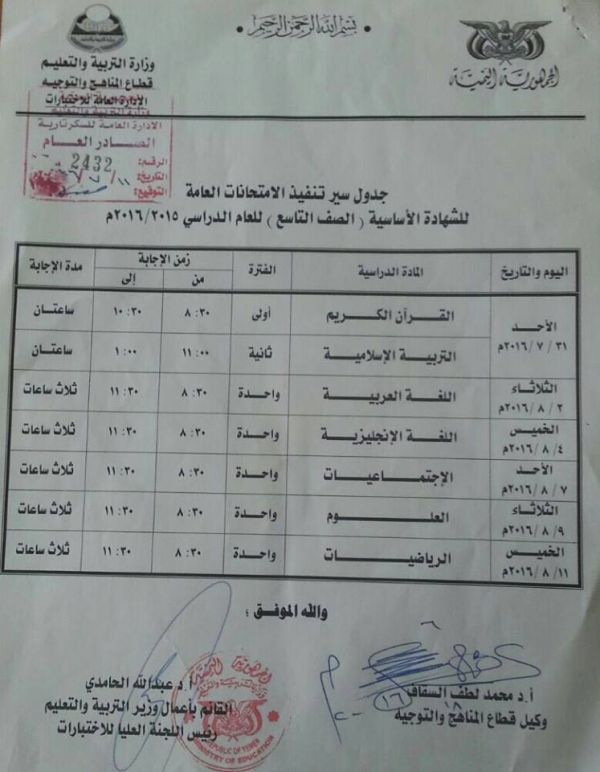 بسم الله الرحمن الرحيم
الجمهورية اليمنية
وزارة التربية والتعليم
قطاع المناهج والتوجيه
الإدارة العامة للاختبارات
الإدارة العامة للسكرتارية
الصادر العام
الرقم: 2432
التاريخ:
التوقيع:
جدول سير تنفيذ الامتحانات العامة
للشهادة الأساسية ( الصف التاسع ) للعام الدراسي ٢٠١٦/٢٠١٥م
اليوم والتاريخ المادة الدراسية الفترة زمن الإجابة مدة الإجابة
من إلى
الأحد ٣١/ ٧ /٢٠١٦م القرآن الكريم أولى ٨:٣٠ ١٠:٣٠ ساعتان
التربية الإسلامية ثانية ١١:٠٠ ١:٠٠ ساعتان
الثلاثاء ٢/ ٨ /٢٠١٦م اللغة العربية واحدة ٨:٣٠ ١١:٣٠ ثلاث ساعات
الخميس ٤/ ٨ /٢٠١٦م اللغة الإنجليزية واحدة ٨:٣٠ ١١:٣٠ ثلاث ساعات
الأحد ٧/ ٨ /٢٠١٦م الإجتماعيات واحدة ٨:٣٠ ١١:٣٠ ثلاث ساعات
الثلاثاء ٩/ ٨ /٢٠١٦م العلوم واحدة ٨:٣٠ ١١:٣٠ ثلاث ساعات
الخميس ١١/ ٨ /٢٠١٦م الرياضيات واحدة ٨:٣٠ ١١:٣٠ ثلاث ساعات
والله الموفق ؛
أ.د محمد لطف السقاف
وكيل قطاع المناهج والتوجية
أ.د عبدالله الحامدي
القائم بأعمال وزير التربية والتعليم
رئيس اللجنة العليا للاختبارات
REPUBLIC OF YEMEN
MINISTRY OF EDUCATION